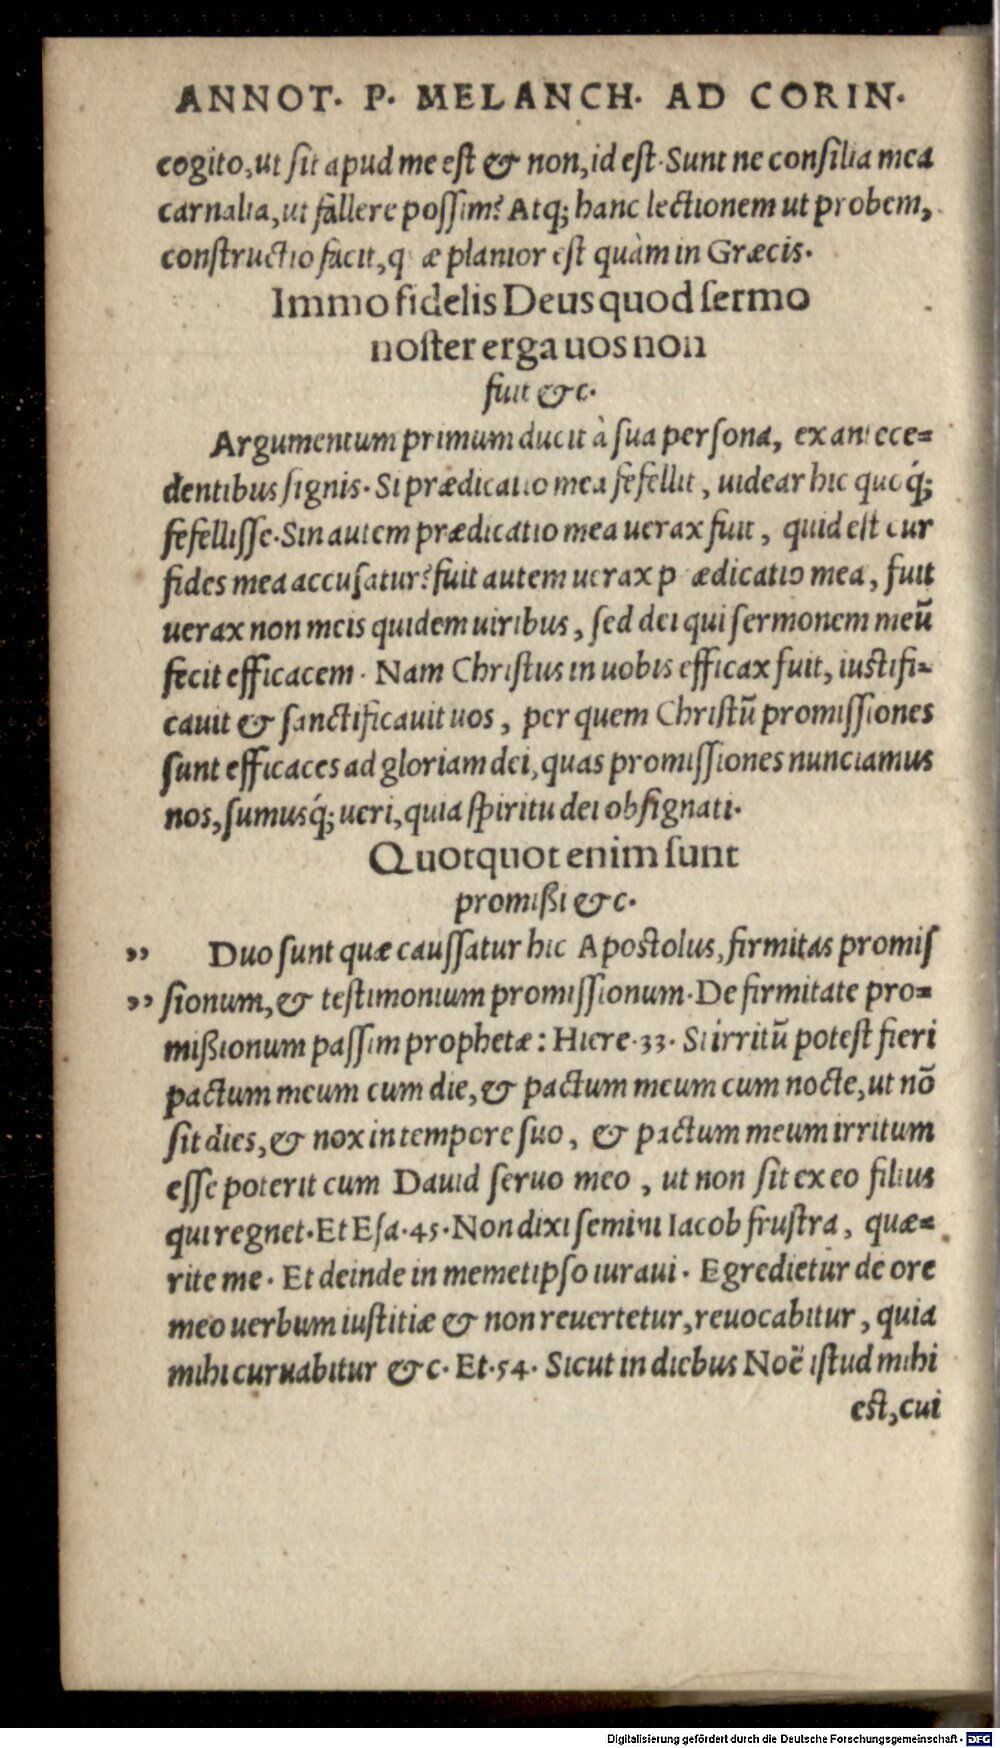 ANNOT. P. MELANCH. AD CORIN.
cogito, ut sit apud me est & non, id est. Sunt ne consilia mea
carnalia, ut fallere possim? Atq; hanc lectionem ut probem,
constructio facit, q æ planior est quàm in Græcis.
Immo fidelis Deus quod sermo
noster erga uos non
fuit &c.
Argumentum primum ducit à sua persona, ex antece=
dentibus signis. Si prædicatio mea fefellit, uidear hic quoq́;
fefellisse. Sin autem prædicatio mea uerax fuit, quid est cur
fides mea accusatur? fuit autem uerax p ædicatio mea, fuit
uerax non meis quidem uiribus, sed dei qui sermonem meũ
fecit efficacem. Nam Christus in uobis efficax fuit, iustifi=
cauit & sanctificauit uos, per quem Christũ promissiones
sunt efficaces ad gloriam dei, quas promissiones nunciamus
nos, sumusq́; ueri, quia spiritu dei obsignati.
Quotquot enim sunt
promißi &c.
,, Duo sunt quæ caussatur hic Apostolus, firmitas promis
,, sionum, & testimonium promissionum. De firmitate pro=
mißionum passim prophetæ: Hiere. 33. Si irritũ potest fieri
pactum meum cum die, & pactum meum cum nocte, ut nõ
sit dies, & nox in tempore suo, & pactum meum irritum
esse poterit cum Dauid seruo meo, ut non sit ex eo filius
qui regnet. Et Esa. 45. Non dixi semini Iacob frustra, quæ=
rite me. Et deinde in memetipso iuraui. Egredietur de ore
meo uerbum iustitiæ & non reuertetur, reuocabitur, quia
mihi curuabitur &c. Et. 54. Sicut in diebus Noë istud mihi
est, cui
Digitalisierung gefördert durch die Deutsche Forschungsgemeinschaft - DFG